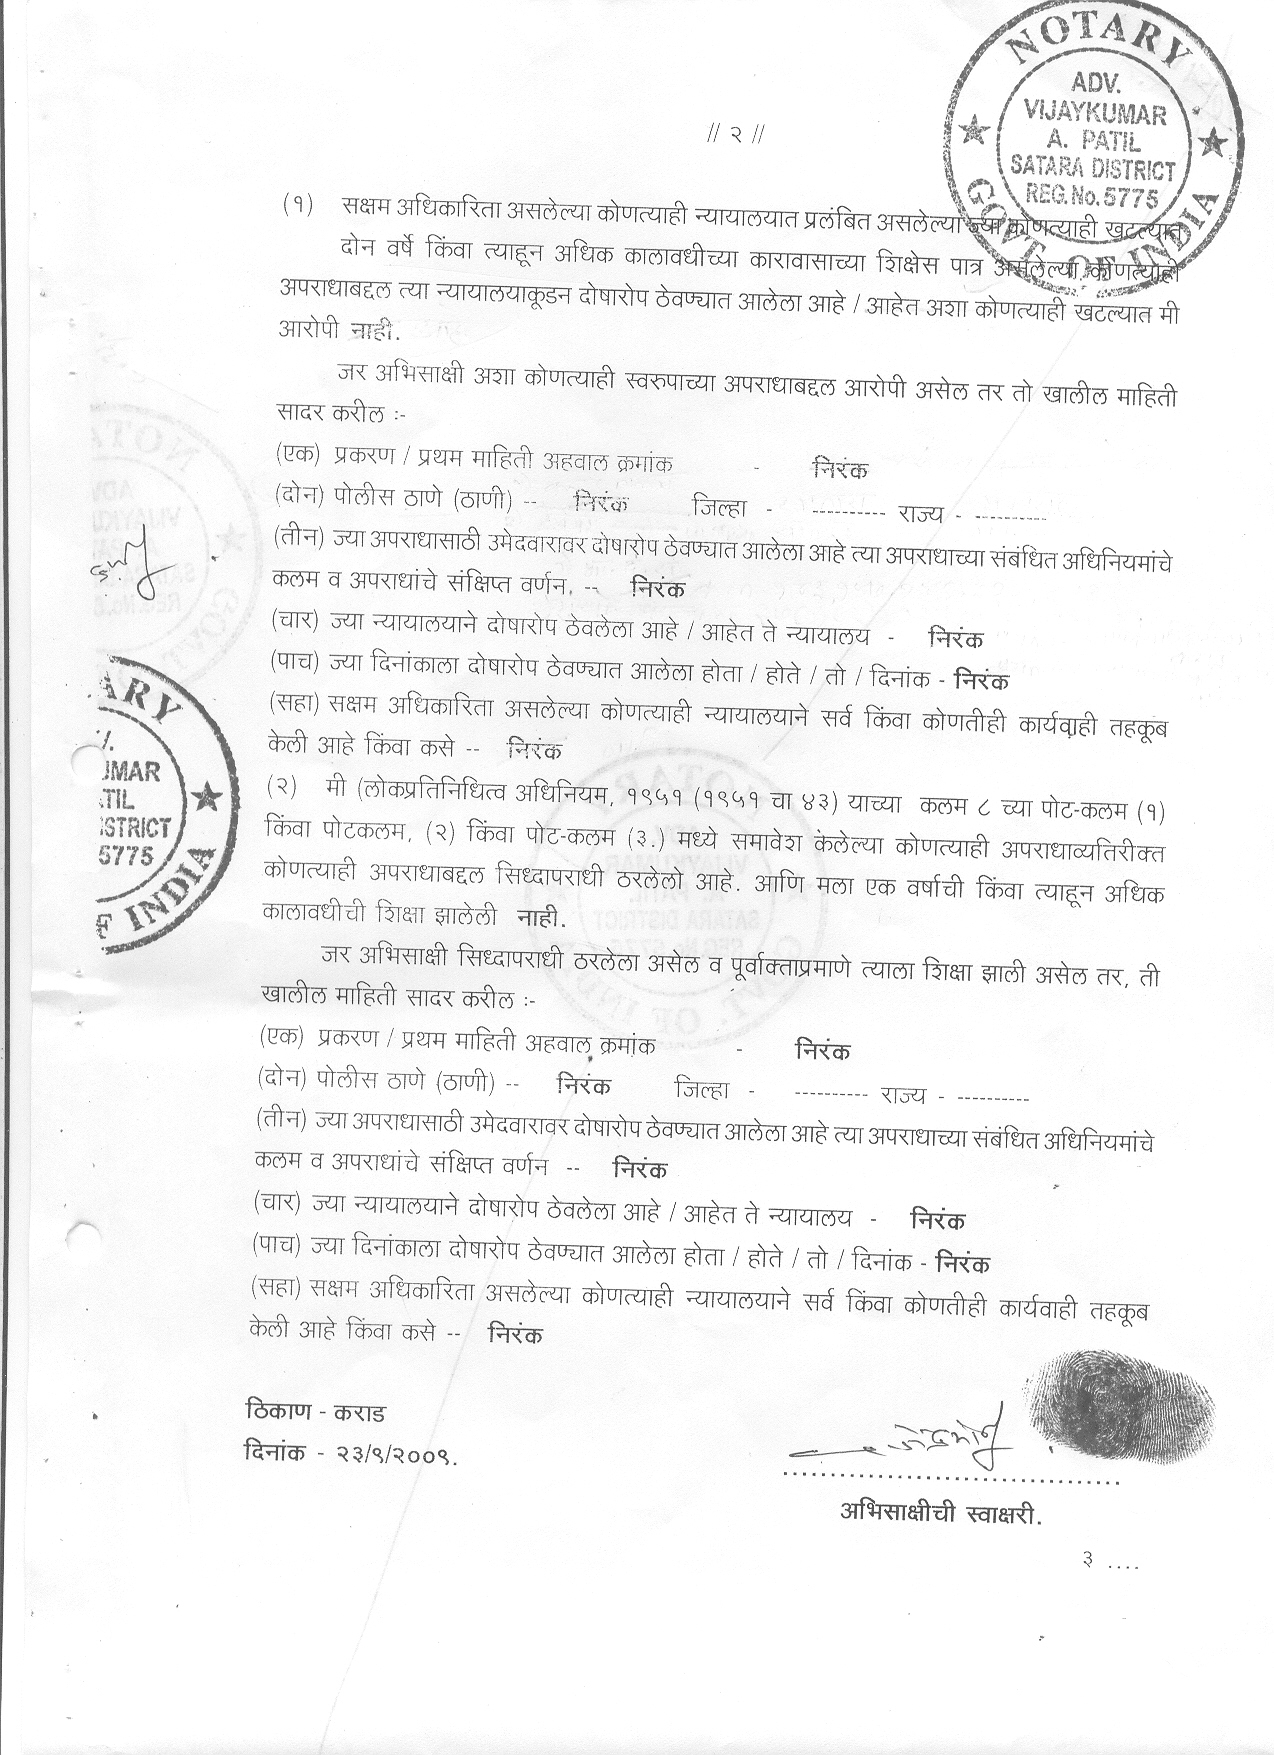 NOTARY
ADV.
VIJAYKUMAR
A. PATIL
SATARA DISTRICT
REG.No.5775
GOVT. OF INDIA
// २ //
(१) सक्षम अधिकारिता असलेल्या कोणत्याही न्यायालयात प्रलंबित असलेल्या ज्या कोणत्याही खटल्यात
दोन वर्षे किंवा त्याहून अधिक कालावधीच्या कारावासाच्या शिक्षेस पात्र असलेल्या कोणत्याही
अपराधाबद्दल त्या न्यायालयाकूडन दोषारोप ठेवण्यात आलेला आहे / आहेत अशा कोणत्याही खटल्यात मी
आरोपी नाही.
जर अभिसाक्षी अशा कोणत्याही स्वरुपाच्या अपराधाबद्दल आरोपी असेल तर तो खालील माहिती
सादर करील :-
(एक) प्रकरण / प्रथम माहिती अहवाल क्रमांक - निरंक
(दोन) पोलीस ठाणे (ठाणी) -- निरंक जिल्हा - ---------- राज्य - ----------
(तीन) ज्या अपराधासाठी उमेदवारावर दोषारोप ठेवण्यात आलेला आहे त्या अपराधाच्या संबंधित अधिनियमांचे
कलम व अपराधांचे संक्षिप्त वर्णन. -- निरंक
(चार) ज्या न्यायालयाने दोषारोप ठेवलेला आहे / आहेत ते न्यायालय - निरंक
(पाच) ज्या दिनांकाला दोषारोप ठेवण्यात आलेला होता / होते / तो / दिनांक - निरंक
(सहा) सक्षम अधिकारिता असलेल्या कोणत्याही न्यायालयाने सर्व किंवा कोणतीही कार्यवाही तहकूब
केली आहे किंवा कसे -- निरंक
(२) मी (लोकप्रतिनिधित्व अधिनियम, १९५१ (१९५१ चा ४३) याच्या कलम ८ च्या पोट-कलम (१)
किंवा पोटकलम, (२) किंवा पोट-कलम (३.) मध्ये समावेश केलेल्या कोणत्याही अपराधाव्यतिरीक्त
कोणत्याही अपराधाबद्दल सिध्दापराधी ठरलेलो आहे. आणि मला एक वर्षाची किंवा त्याहून अधिक
कालावधीची शिक्षा झालेली नाही.
जर अभिसाक्षी सिध्दापराधी ठरलेला असेल व पूर्वाक्ताप्रमाणे त्याला शिक्षा झाली असेल तर, ती
खालील माहिती सादर करील :-
(एक) प्रकरण / प्रथम माहिती अहवाल क्रमांक - निरंक
(दोन) पोलीस ठाणे (ठाणी) -- निरंक जिल्हा - ---------- राज्य - ----------
(तीन) ज्या अपराधासाठी उमेदवारावर दोषारोप ठेवण्यात आलेला आहे त्या अपराधाच्या संबंधित अधिनियमांचे
कलम व अपराधांचे संक्षिप्त वर्णन -- निरंक
(चार) ज्या न्यायालयाने दोषारोप ठेवलेला आहे / आहेत ते न्यायालय - निरंक
(पाच) ज्या दिनांकाला दोषारोप ठेवण्यात आलेला होता / होते / तो / दिनांक - निरंक
(सहा) सक्षम अधिकारिता असलेल्या कोणत्याही न्यायालयाने सर्व किंवा कोणतीही कार्यवाही तहकूब
केली आहे किंवा कसे -- निरंक
ठिकाण - कराड
दिनांक - २३/९/२००९.
अभिसाक्षीची स्वाक्षरी.
३ ....